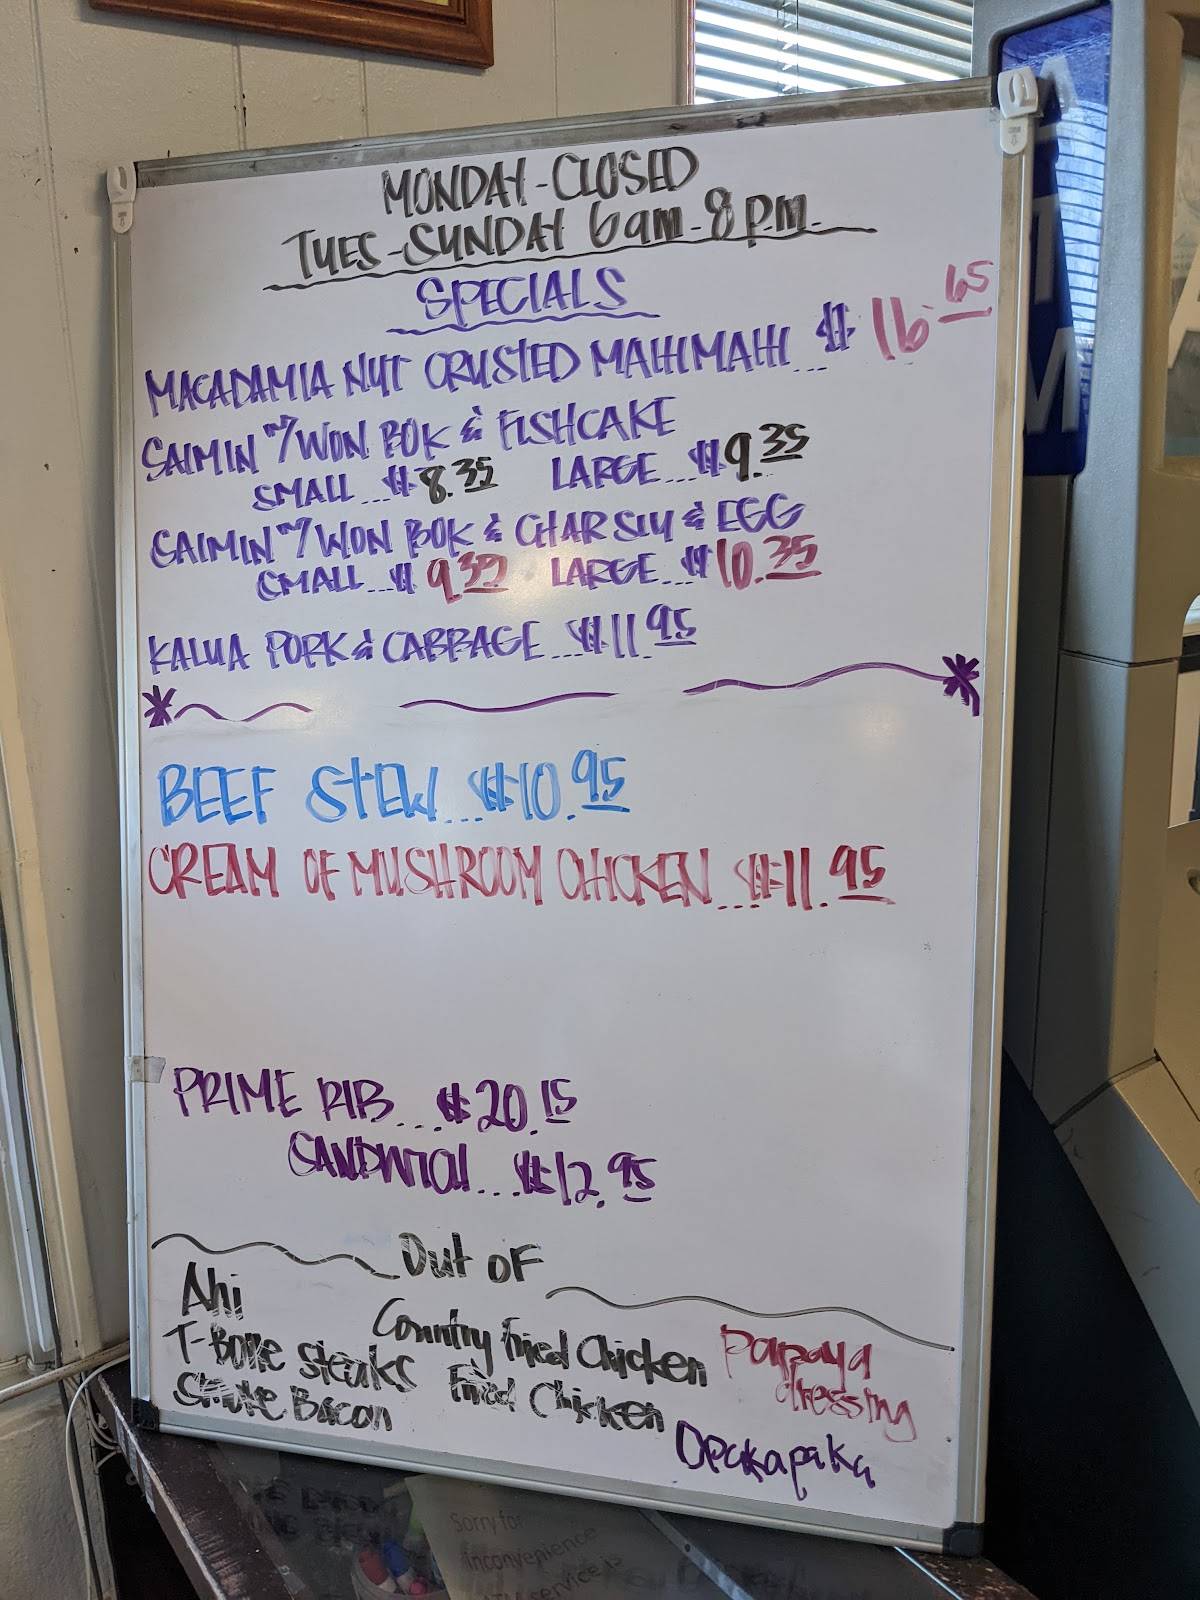 MONDAY-CLOSED
TUES-SUNDAY 6am-8pm.
SPECIALS
MACADAMIA NUT CRUSTED MAHIMAHI...$16.65
SAIMIN W/WON BOK & FISHCAKE
SMALL...$8.35 LARGE...$9.35
SAIMIN W/WON BOK & CHAR SIU & EGG
SMALL...$9.35 LARGE...$10.35
KALUA PORK & CABBAGE...$11.95
BEEF STEW...$10.95
CREAM OF MUSHROOM CHICKEN...$11.95
PRIME RIB...$20.15
SANDWICH...$12.95
Out of
Ahi
T-Bone steaks
Smoke Bacon
Country Fried Chicken
Fried Chicken
Papaya
dressing
Opakapaka
Sorry for
inconvenience